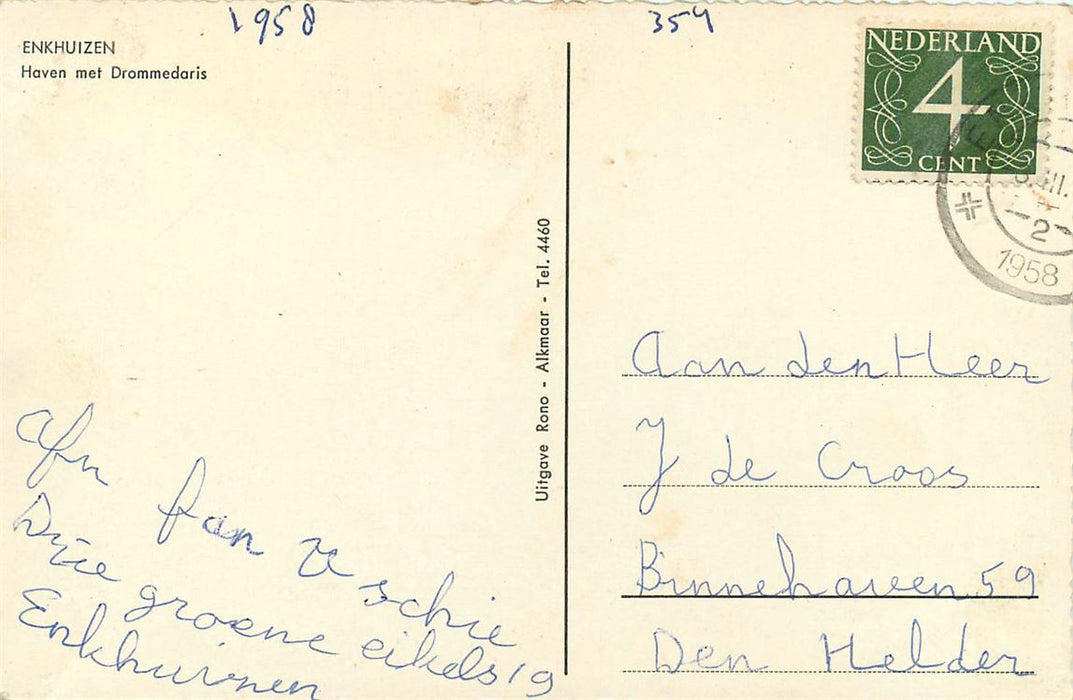 1958
354
ENKHUIZEN
Haven met Drommedaris
NEDERLAND
4
CENT
2
1958
Uitgave Rono - Alkmaar - Tel. 4460
Afn fan v schie
Drie groene eikels 19
Enkhuizen
Aan den Heer
J de Croos
Binnehaven 59
Den Helder